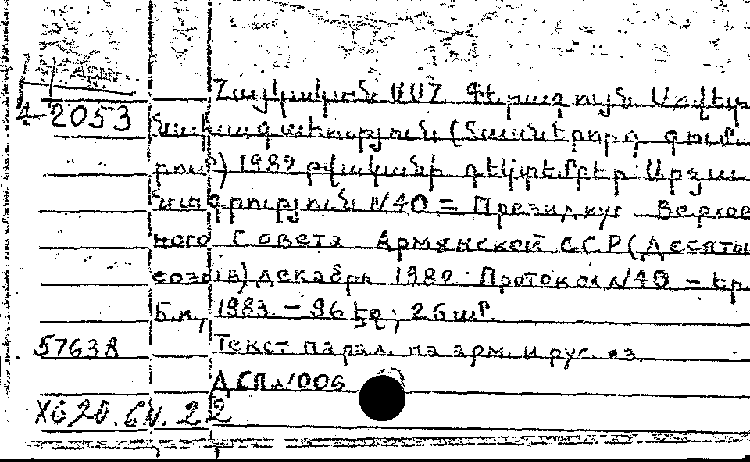 Հայկական ՍՍՀ Գերագույն Սովետի
4-2053
նախագահություն (տասներորդ գում.
րում) 1982 թվականի դեկտեմբեր. Արձա
նագրություն N40 = Президиум Верхов
ного Совета Армянской ССР (Десяты
созыв) декабрь 1980. Протокол N40 - Եր.
Б.и., 1983. - 96 էջ; 26 սմ.
57638
Текст парал. на арм. и рус. яз.
ДСП N006